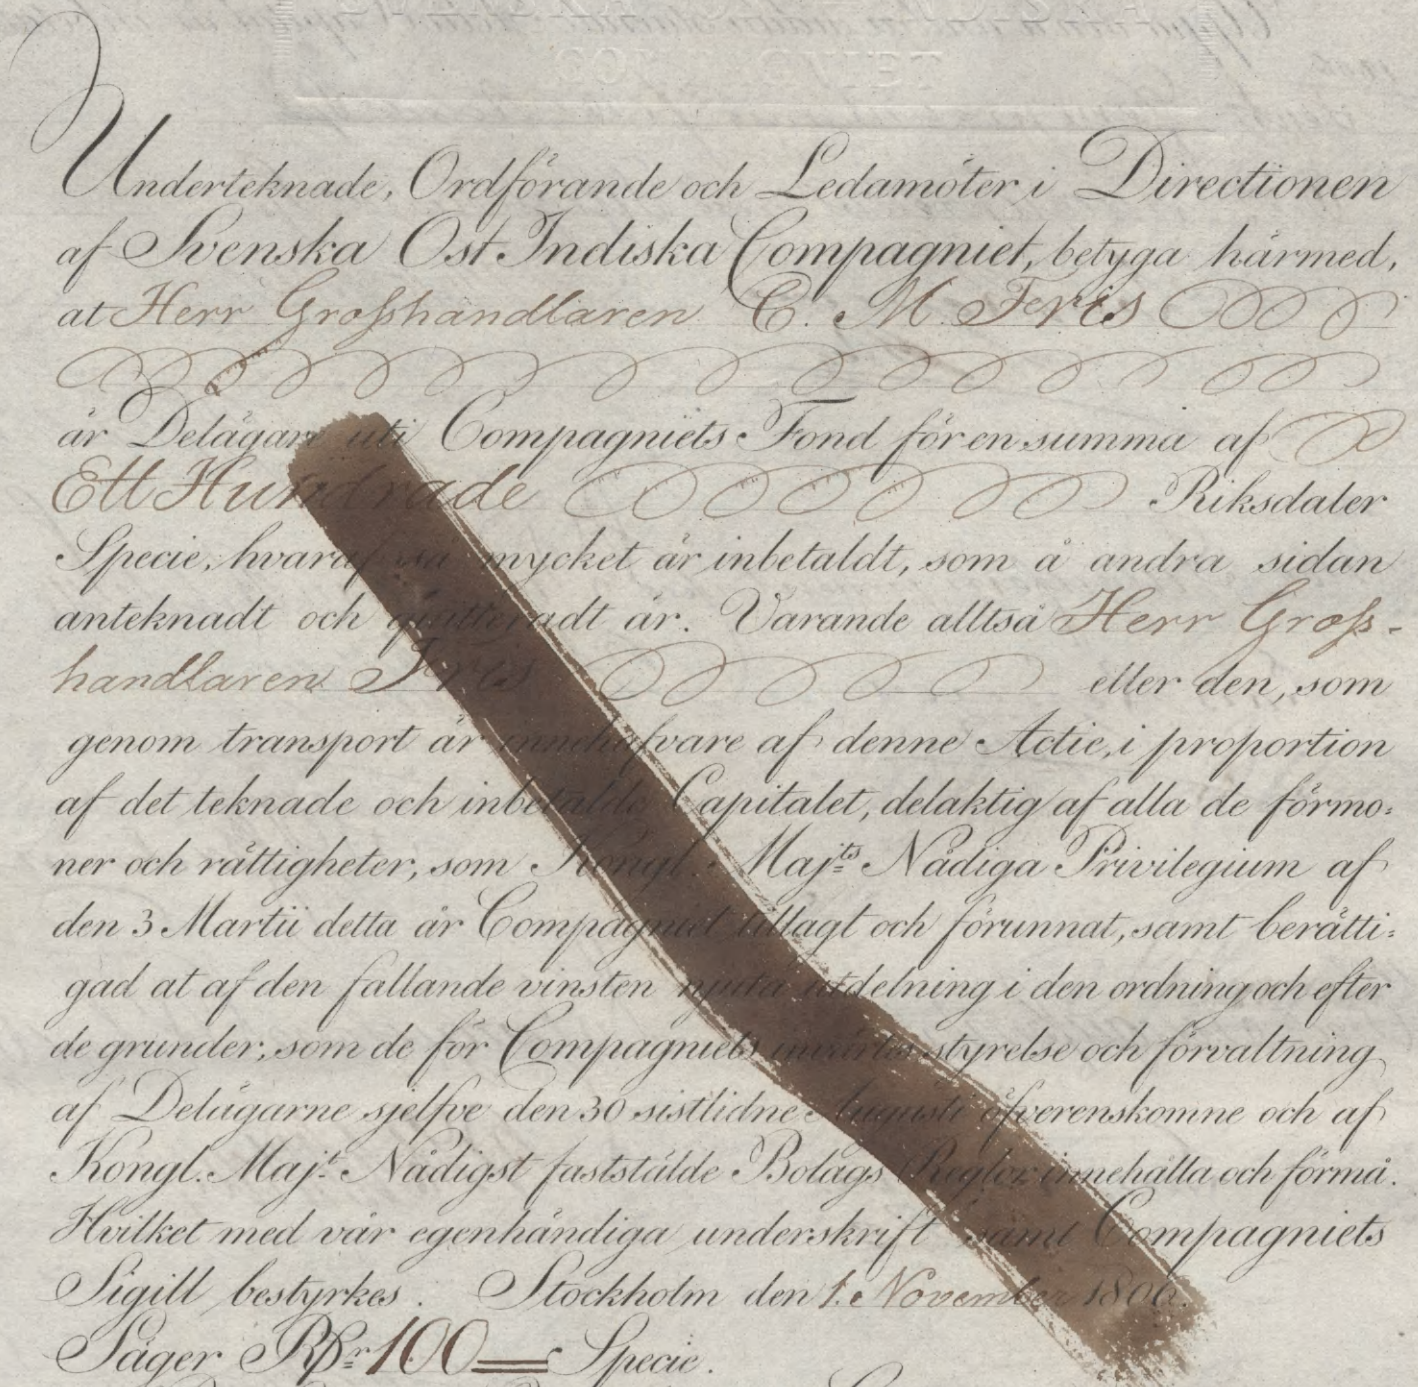 Underteknade, Ordförande och Ledamöter i Directionen
af Svenska Ost Indiska Compagniet, betyga härmed,
at Herr Grosshandlaren C. M. Fris
är Delägare uti Compagniets Fond för en summa af
Ett Hundrade Riksdaler
Specie, hvaraf så mycket är inbetaldt, som å andra sidan
anteknadt och quitteradt är. Varande alltså Herr Gross-
handlaren Fris eller den, som
genom transport är innehafvare af denne Actie, i proportion
af det teknade och inbetalde Capitalet, delaktig af alla de förmo:
ner och rättigheter, som Kongl. Maj:ts Nådiga Privilegium af
den 3 Martii detta år Compagniet tillagt och förunnat, samt berätti:
gad at af den fallande vinsten njuta utdelning i den ordning och efter
de grunder, som de för Compagniets inwärtes styrelse och förvaltning
af Delägarne sjelfve den 30 sistlidne Augusti öfverenskomne och af
Kongl. Maj:t Nådigst fastställde Bolags Reglor innehålla och förmå.
Hvilket med vår egenhändiga underskrift samt Compagniets
Sigill bestyrkes. Stockholm den 1. November 1806.
Säger Rdr 100 Specie.